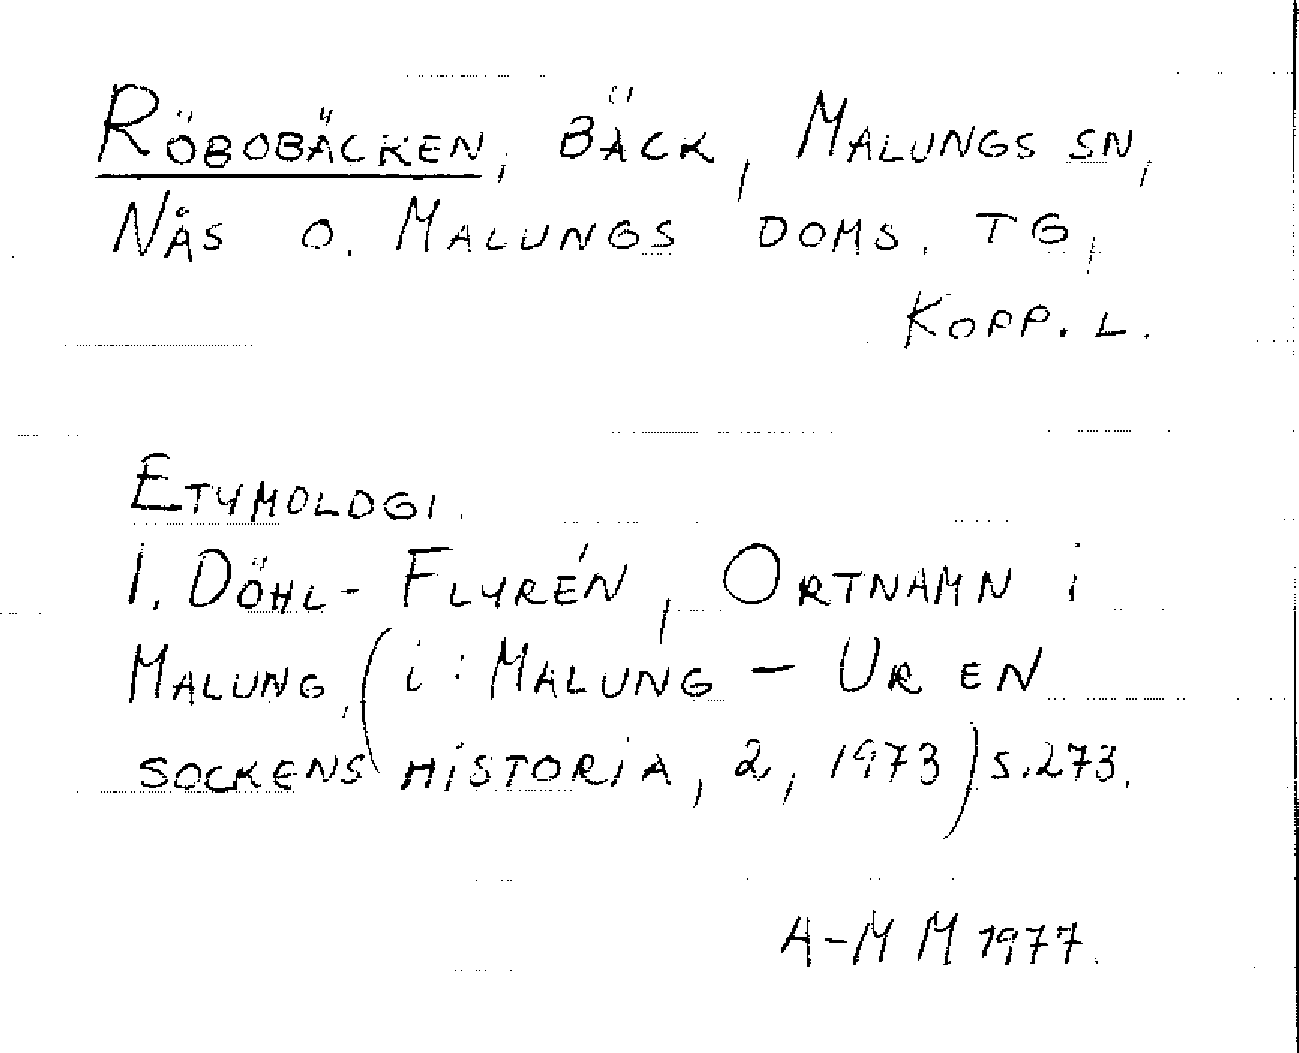 RÖBOBÄCKEN, BÄCK, MALUNGS SN,
NÅS O. MALUNGS DOMS. TG,
KOPP. L.
ETYMOLOGI.
I. DÖHL-FLYRÉN, ORTNAMN i
MALUNG, (i: MALUNG – UR EN
SOCKENS HISTORIA, 2, 1973) S. 273.
A-M M 1977.